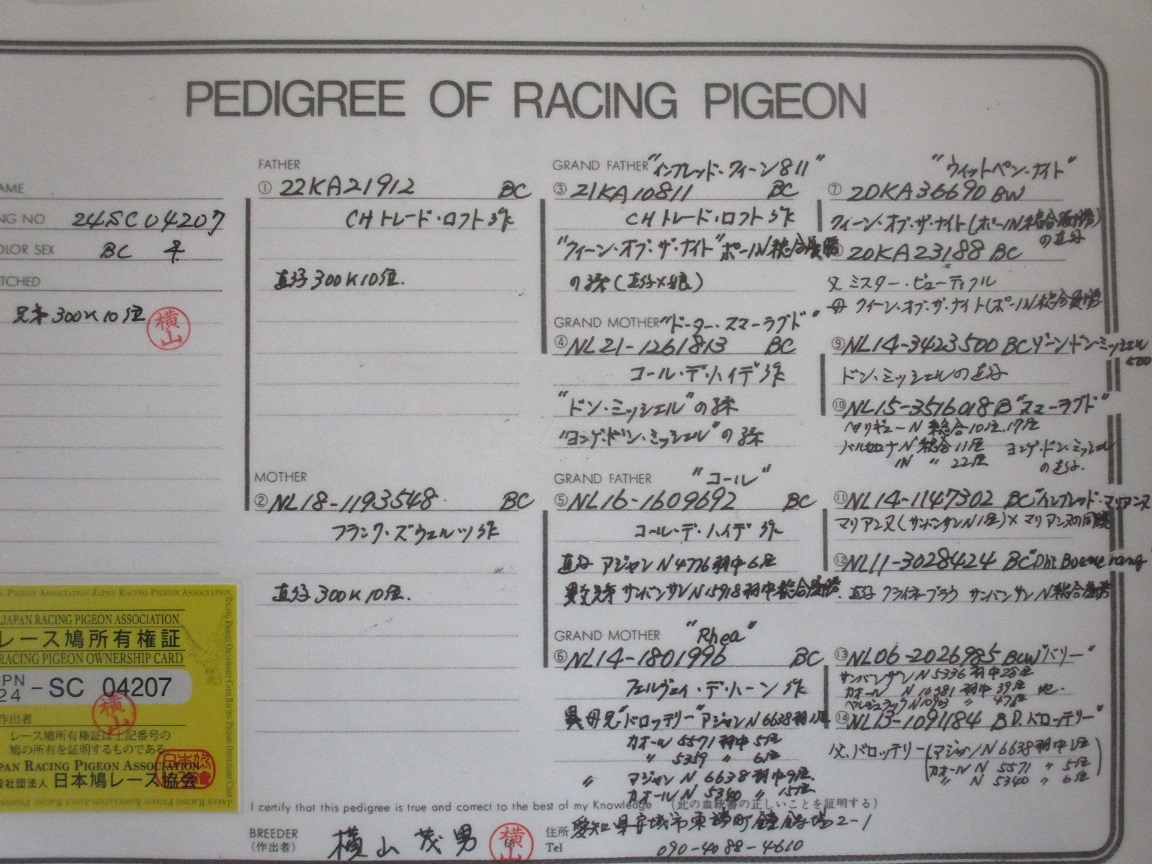 PEDIGREE OF RACING PIGEON
AME
NG NO 24SC04207
OLOR SEX BC ♀
TCHED
兄弟300K10位
横山
FATHER
① 22KA21912 BC
CHトレード・ロフト作
直仔300K10位.
MOTHER
② NL18-1193548 BC
フランク・ズウェルツ作
直仔300K10位.
GRAND FATHER "インブレッド・クィーン811"
③ 21KA10811 BC
CHトレード・ロフト作
"クィーン・オブ・ザ・ナイト" ポーIN総合優勝
の孫(直仔×娘)
GRAND MOTHER "ドーター・スマーラグド"
④ NL21-1261813 BC
コール・デ・ハイデ作
"ドン・ミッシェル"の孫
"ヨンゲ・ドン・ミッシェル"の孫
GRAND FATHER "コール"
⑤ NL16-1609692 BC
コール・デ・ハイデ作
直仔 アジャンN4776羽中6位
異父兄弟 サンバンサンN15918羽中総合優勝
GRAND MOTHER "Rhea"
⑥ NL14-1801996 BC
フェルヴェイ・デ・ハーン作
異母兄"ドロッテリー" アジャンN6638羽1位
カオール 5571羽中5位
〃 5359 〃 6位
〃 アジャンN 6638羽中9位.
カオールN 5340 〃 15位
"ウィットペン・ナイト"
⑦ 20KA36690 BW
クィーン・オブ・ザ・ナイト(ポーIN総合優勝)
の直仔
⑧ 20KA23188 BC
父 ミスター・ビューティフル
母 クィーン・オブ・ザ・ナイト(ポーIN総合優勝
⑨ NL14-3423500 BC ゾーン・ドン・ミッシェル
500
ドン・ミッシェルの直仔
⑩ NL15-3516018 B "スマーラグド"
ペリギューN 総合10位.17位
バルセロナN 総合11位 ヨンゲ・ドン・ミッシェル
IN 〃 22位 の直仔.
⑪ NL14-1147302 BC "インブレッド・マリアンヌ
マリアンヌ(サンバンサンN1位)×マリアンヌの同腹
⑫ NL11-3028424 BC "Dhr Boomerang
直仔 クライネ・ブラウ サンバンサンN総合優勝
⑬ NL06-2026985 BCW "バリー"
サンバンサンN 5336 羽中28位
カオール N 10381 羽中 39位 他.
ベルジュラックN10983 〃 47位
⑭ NL13-1091184 B D.ドロッテリー"
父.ドロッテリー(アジャンN 6638羽中1位
カオールN 5571 〃 5位
〃 N 5340 〃 6位)
JAPAN RACING PIGEON ASSOCIATION
レース鳩所有権証
RACING PIGEON OWNERSHIP CARD
JPN
24 - SC 04207
作出者
横山
レース鳩所有権証は上記番号の
鳩の所有を証明するものである
JAPAN RACING PIGEON ASSOCIATION
般社団法人 日本鳩レース協会
I certify that this pedigree is true and correct to the best of my Knowledge (此の血統書の正しいことを証明する)
BREEDER
(作出者) 横山茂男 横山
住所 愛知県安城市東端町鐘鋳場2-1
Tel 090-4088-4610